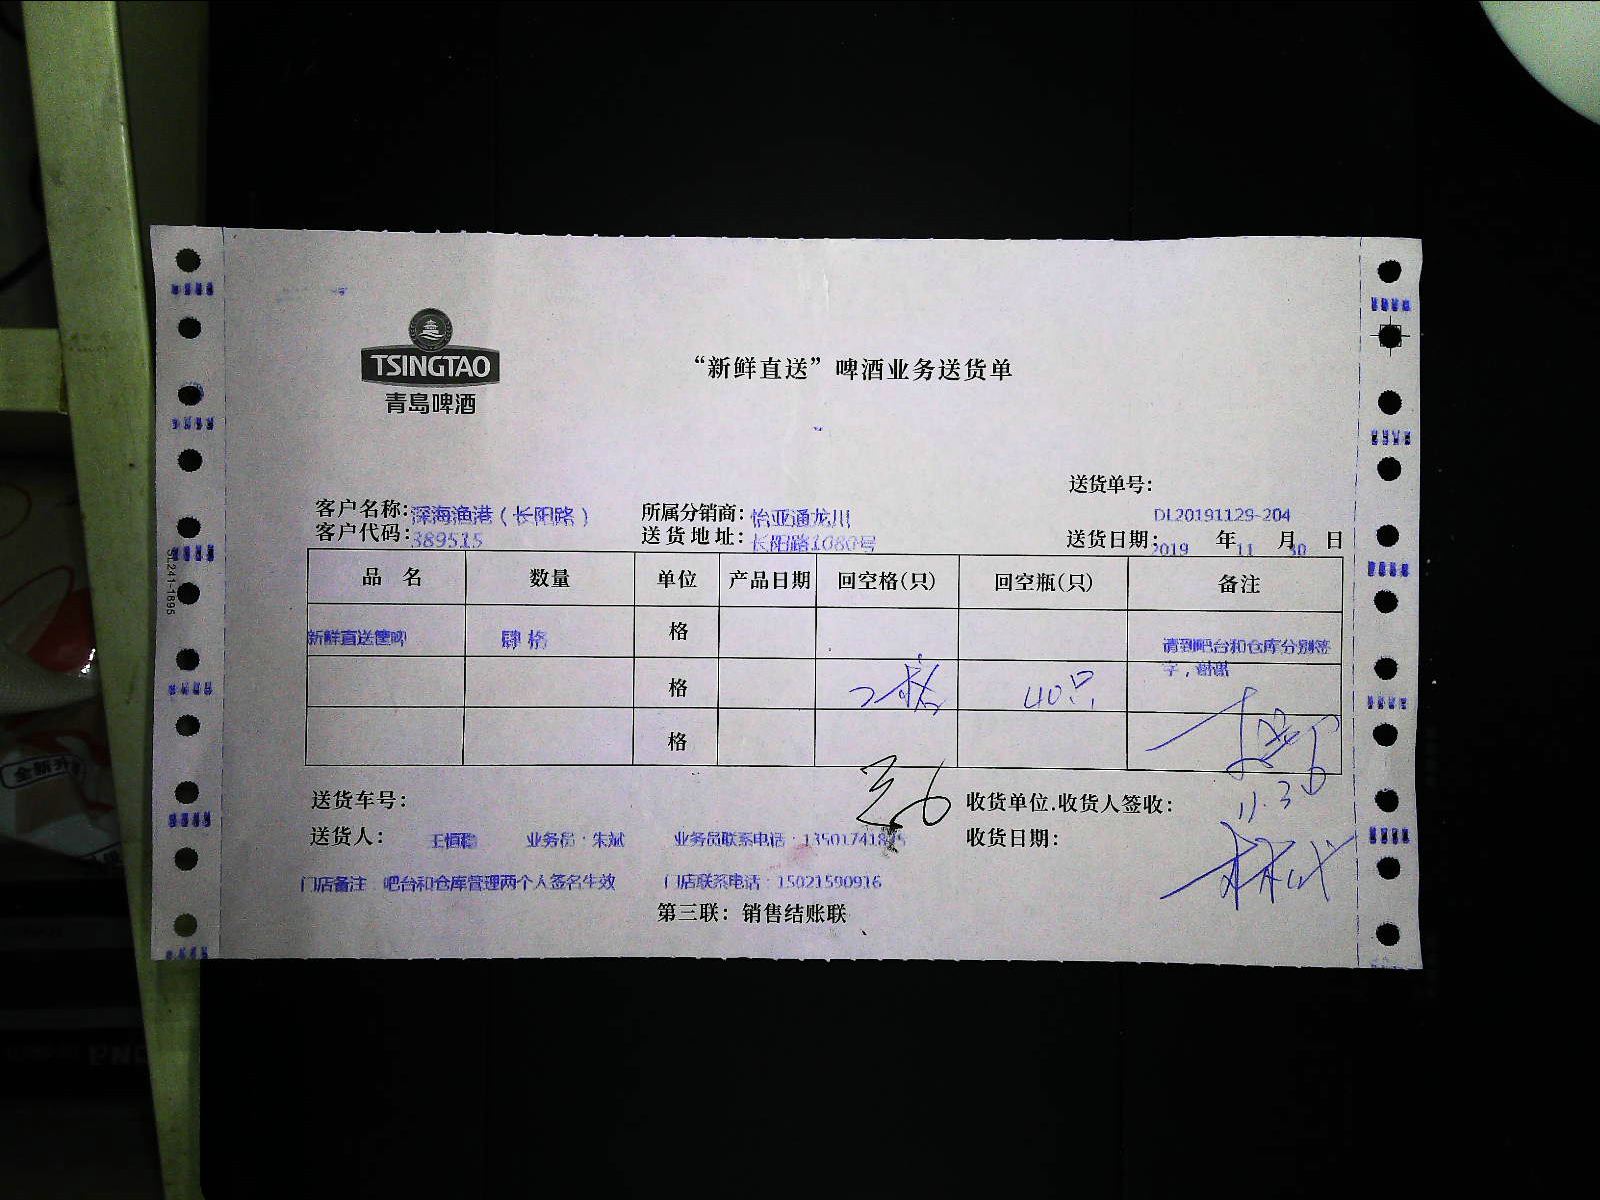 TSINGTAO
青岛啤酒
“新鲜直送”啤酒业务送货单
送货单号：
DL20191129-204
客户名称：深海渔港（长阳路） 所属分销商：怡亚通龙川
客户代码：389515 送货地址：长阳路1080号 送货日期：2019 年 11 月 30 日
品 名 数量 单位 产品日期 回空格(只) 回空瓶(只) 备注
新鲜直送 肆格 格 请到吧台和仓库分别签
字，谢谢
格 2格 40只
格
送货车号： 收货单位.收货人签收：
11.30
送货人： 王恒 业务员：朱斌 业务员联系电话： 收货日期：
门店备注：吧台和仓库管理两个人签名生效 门店联系电话：15021590916
第三联：销售结账联
SL241-1895
全新升